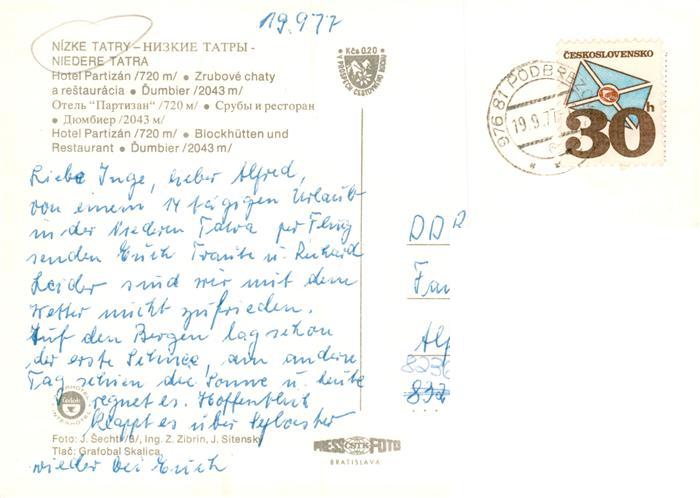 19.9 77
NÍZKE TATRY - НИЗКИЕ ТАТРЫ -
NIEDERE TATRA
Hotel Partizán /720 m/ ● Zrubové chaty
a reštaurácia ● Ďumbier /2043 m/
Отель "Партизан" /720 м/ ● Срубы и ресторан
● Дюмбиер /2043 м/
Hotel Partizán /720 m/ ● Blockhütten und
Restaurant ● Ďumbier /2043 m/
Kčs 0,20
Liebe Inge, lieber Alfred,
von einem 14 tägigen Urlaub
in der Niederen Tatra per Flug
senden Euch Traute u. Richard
Leider sind wir mit dem
Wetter nicht zufrieden.
Auf den Bergen lag schon
der erste Schnee, am andern
Tag schien die Sonne u. heute
regnet es. Hoffentlich
klappt es über Sylvester
wieder bei Euch
Foto: J. Šechtl /8/, Ing. Z. Zibrin, J. Sitenský
Tlač: Grafobal Skalica,
PRESS ČSTK FOTO
BRATISLAVA
ČESKOSLOVENSKO
30 h
976 81 PODBREZO
19.9.77
DDR
Fam
Alf